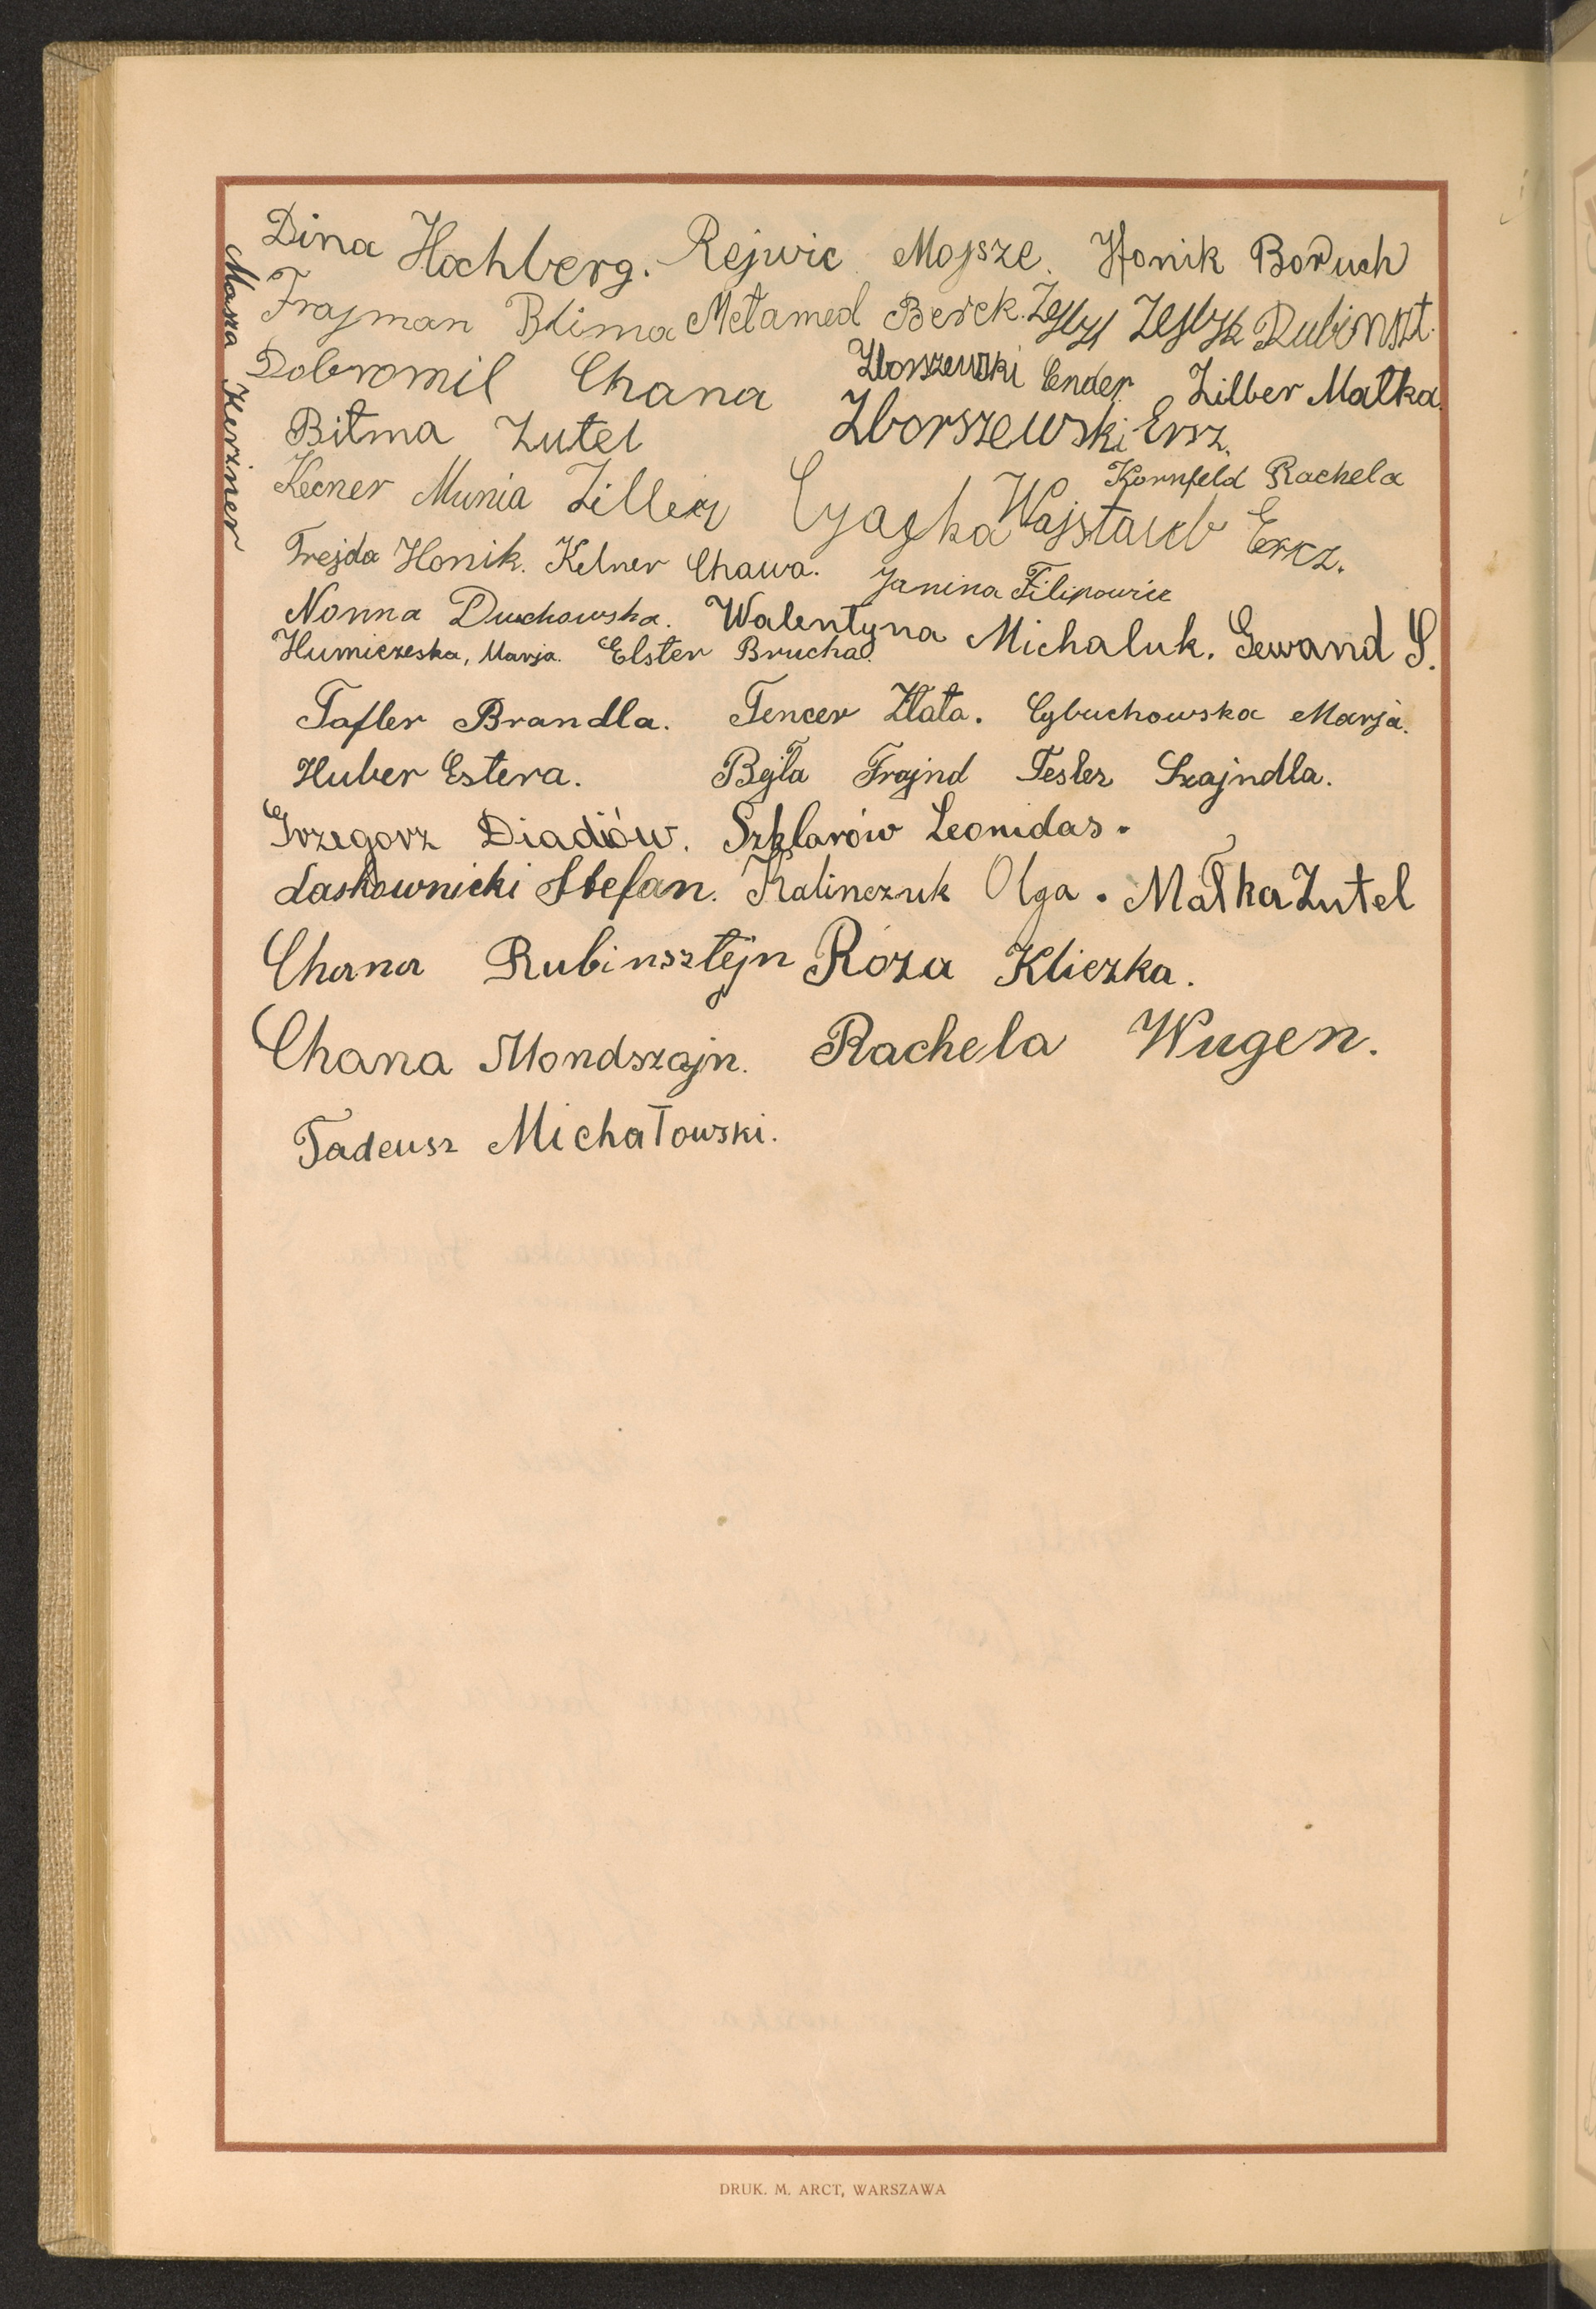 Dina Hochberg. Rejwic Mojsze. Honik Boruch
Frajman Blima Mełamed Berek. Zejlyk Rubinszt.
Dobromil Chana Zborszewski Ender. Zilber Małka.
Bitma Zutel Zborszewski Ersz.
Kecner Munia Ziller Cyajka Wajstaub Ercz. Kornfeld Rachela
Frejda Honik. Kelner Chawa. Janina Filipowic
Nonna Duchowska. Walentyna Michaluk. Gewand S.
Humiczeska, Marja. Elster Brucha.
Tafler Brandla. Tencer Złata. Cybuchowska Marja.
Huber Estera. Bejła Frajnd Tesler Szajndla.
Grzegorz Diadiów. Szklarów Leonidas.
Laskownicki Stefan. Kalinczuk Olga. Małka Zutel
Chana Rubinsztejn Róza Kliczka.
Chana Mondszajn. Rachela Wugen.
Tadeusz Michałowski.
Masza Kerzner
DRUK. M. ARCT, WARSZAWA